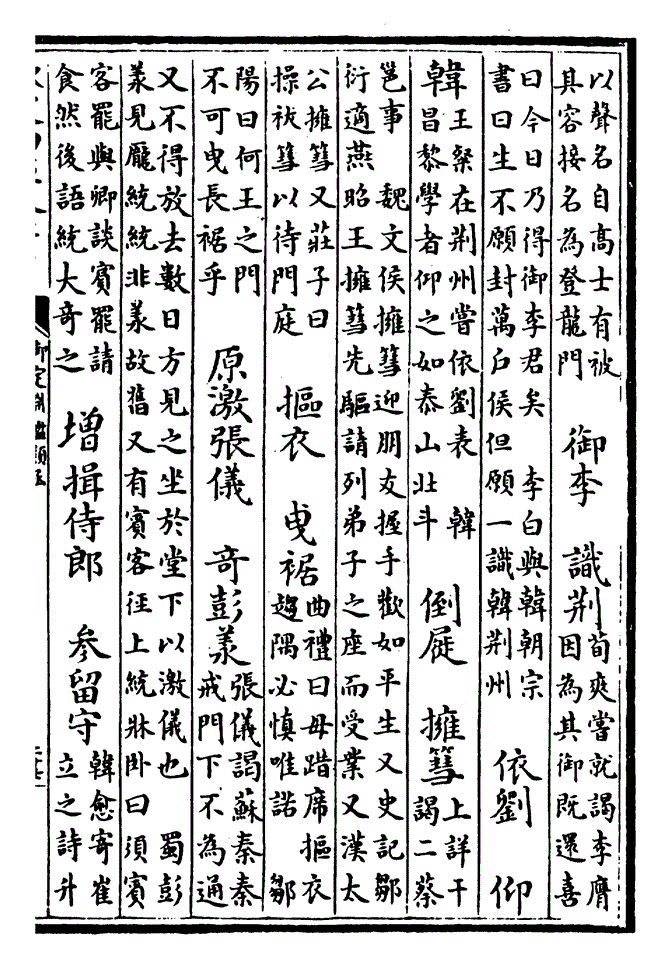 以聲名自高士有被
其容接名為登龍門
御李　識荆
荀爽嘗就謁李膺
因為其御既還喜
曰今日乃得御李君矣　李白與韓朝宗
書曰生不願封萬户侯但願一識韓荆州
依劉　仰
韓
王粲在荆州嘗依劉表　韓
昌黎學者仰之如泰山北斗
倒屣　擁篲
上詳干
謁二蔡
邕事　魏文侯擁篲迎朋友握手歡如平生又史記鄒
衍適燕昭王擁篲先驅請列弟子之座而受業又漢太
公擁篲又莊子曰
操袚篲以待門庭
摳衣　曳裾
曲禮曰毋踏席摳衣
趨隅必慎唯諾　鄒
陽曰何王之門
不可曳長裾乎
原激張儀　竒彭羕
張儀謁蘇秦秦
戒門下不為通
又不得放去數日方見之坐於堂下以激儀也　蜀彭
羕見龎統統非羕故舊又有賓客徑上統牀卧曰須賓
客罷與卿談賓罷請
食然後語統大奇之
増揖侍郎　參留守
韓愈寄崔
立之詩升
御定淵鑑類函